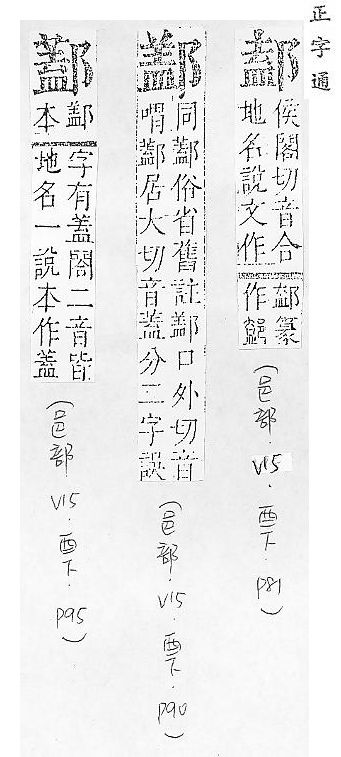 正字通
侯閣切音合
地名說文作
篆
作
(邑部.V15.酉下.P81)
同 俗省舊註 口外切音
喟 居大切音蓋分二字誤
(邑部.V15.酉下.P90)
字有蓋閤二音皆
本
地名一說本作蓋
(邑部 V15.酉下.P95)